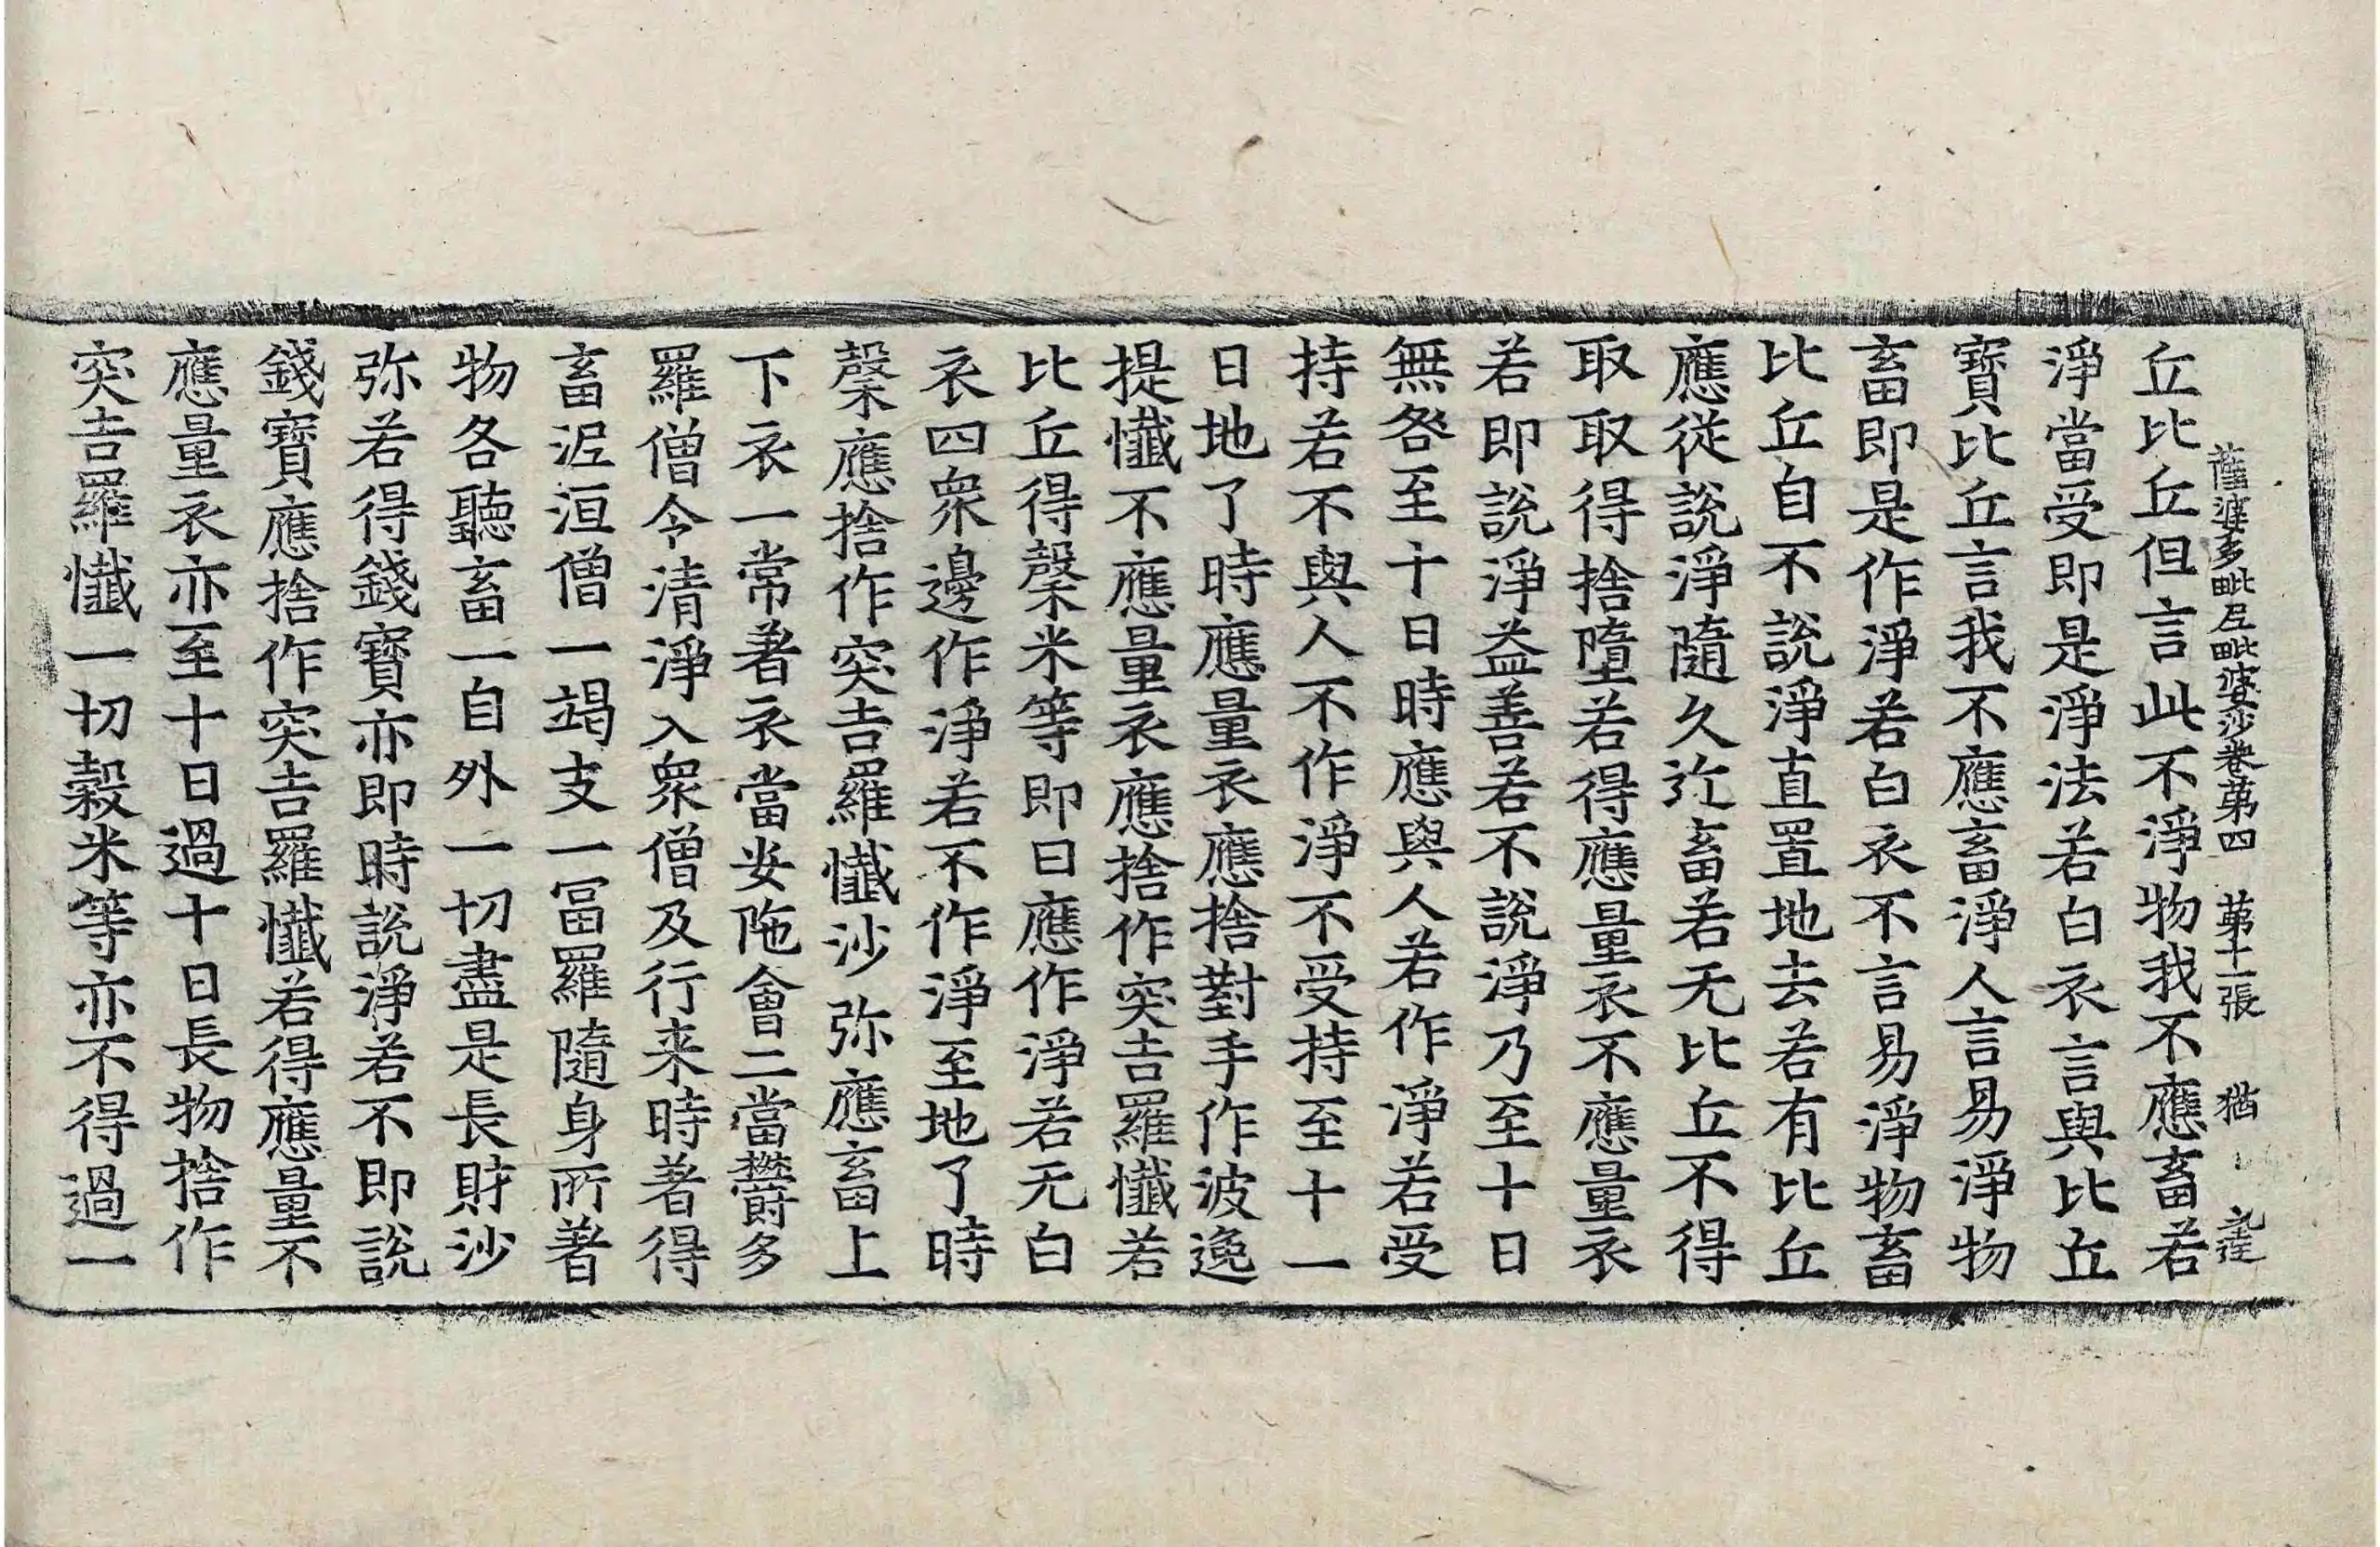 舊婆多毗尼毗婆沙卷第四 第十一張 猶
丘比丘但言此不淨物我不應畜若
淨當受即是淨法若白衣言與比丘
寶比丘言我不應畜淨人言易淨物
畜即是作淨若白衣不言易淨物畜
比丘自不說淨直置地去若有比丘
應從說淨隨久近畜若无比丘不得
取取得捨墮若得應量衣不應量衣
若即說淨益善若不說淨乃至十日
無咎至十日時應與人若作淨若受
持若不與人不作淨不受持至十一
日地了時應量衣應捨對手作波逸
提懺不應量衣應捨作突吉羅懺若
比丘得槃米等即日應作淨若无白
衣四衆邊作淨若不作淨至地了時
槃應捨作突吉羅懺沙弥應畜上
下衣一當著衣當安陁會二當欝多
羅僧令清淨入衆僧及行来時著得
畜泥洹僧一竭支一冨羅隨身所著
物各聽畜一自外一切盡是長財沙
弥若得錢寶亦即時說淨若不即說
錢寶應捨作突吉羅懺若得應量不
應量衣亦至十日過十日長物捨作
突吉羅懺一切穀米等亦不得過一